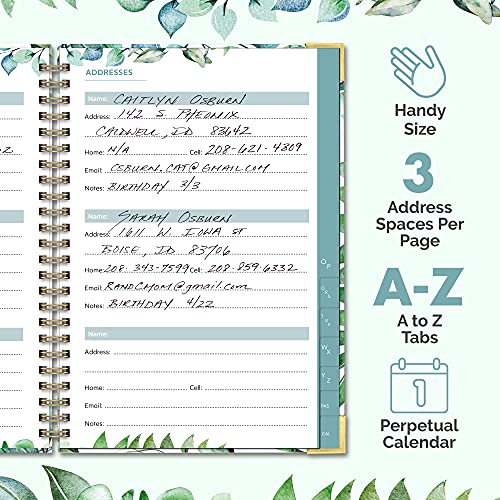 ADDRESSES
Name: CAITLYN OSBURN
Address: 142 S. PHEONIX
CALDWELL, ID 83642
Home: N/A Cell: 208-621-4309
Email: OSBURN.CAT@GMAIL.COM
Notes: BIRTHDAY 3/3
Name: SARAH OSBURN
Address: 1611 W. IOWA ST
BOISE, ID 83706
Home: 208-343-7599 Cell: 208-859-6332
Email: RANDCMOM@gmail.com
Notes: BIRTHDAY 4/22
Name:
Address:
Home: Cell:
Email:
Notes:
OP
WX
YZ
CAL
Handy
Size
3
Address
Spaces Per
Page
A-Z
A to Z
Tabs
1
Perpetual
Calendar